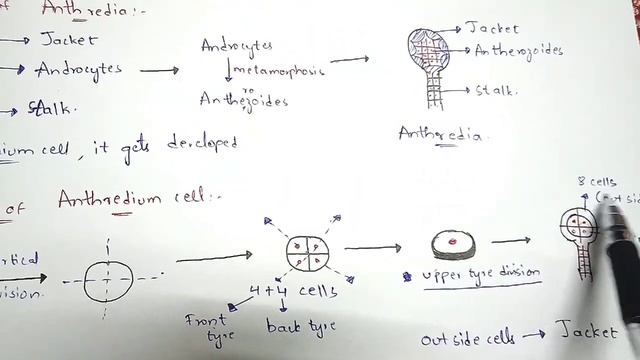 of Anthredia:-
Jacket
Androcytes
Stalk.
Androcytes
metamorphosis
re
Anthezoides
Jacket
Antherozoides
Stalk.
Antheredia.
cell, it gets developed
of Anthredium cell:-
4+4 cells
Front tyre
back tyre
upper tyre division
8 cells
out side cells → Jacket